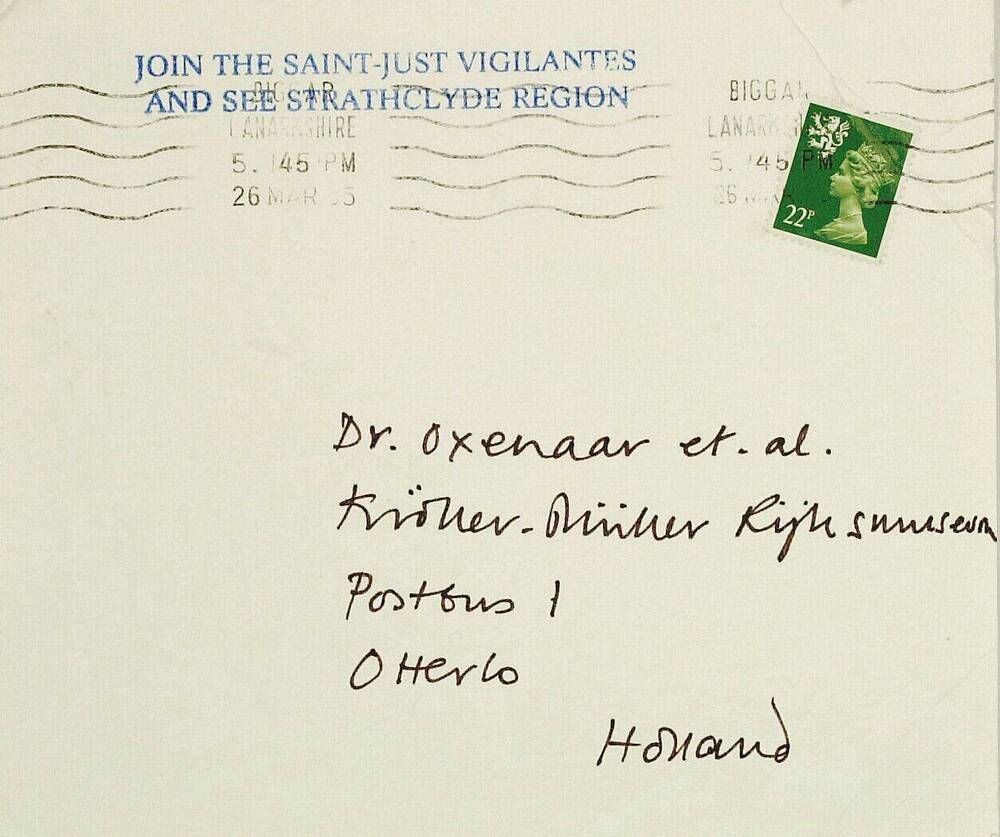 JOIN THE SAINT-JUST VIGILANTES
AND SEE STRATHCLYDE REGION
BIGGAR
LANARKSHIRE
5. 45 PM
26 MAR
BIGGAR
LANARKSHI
5. 45 PM
26
22P
Dr. Oxenaar et. al.
Kröller-Müller Rijksmuseum
Postbus 1
Otterlo
Holland